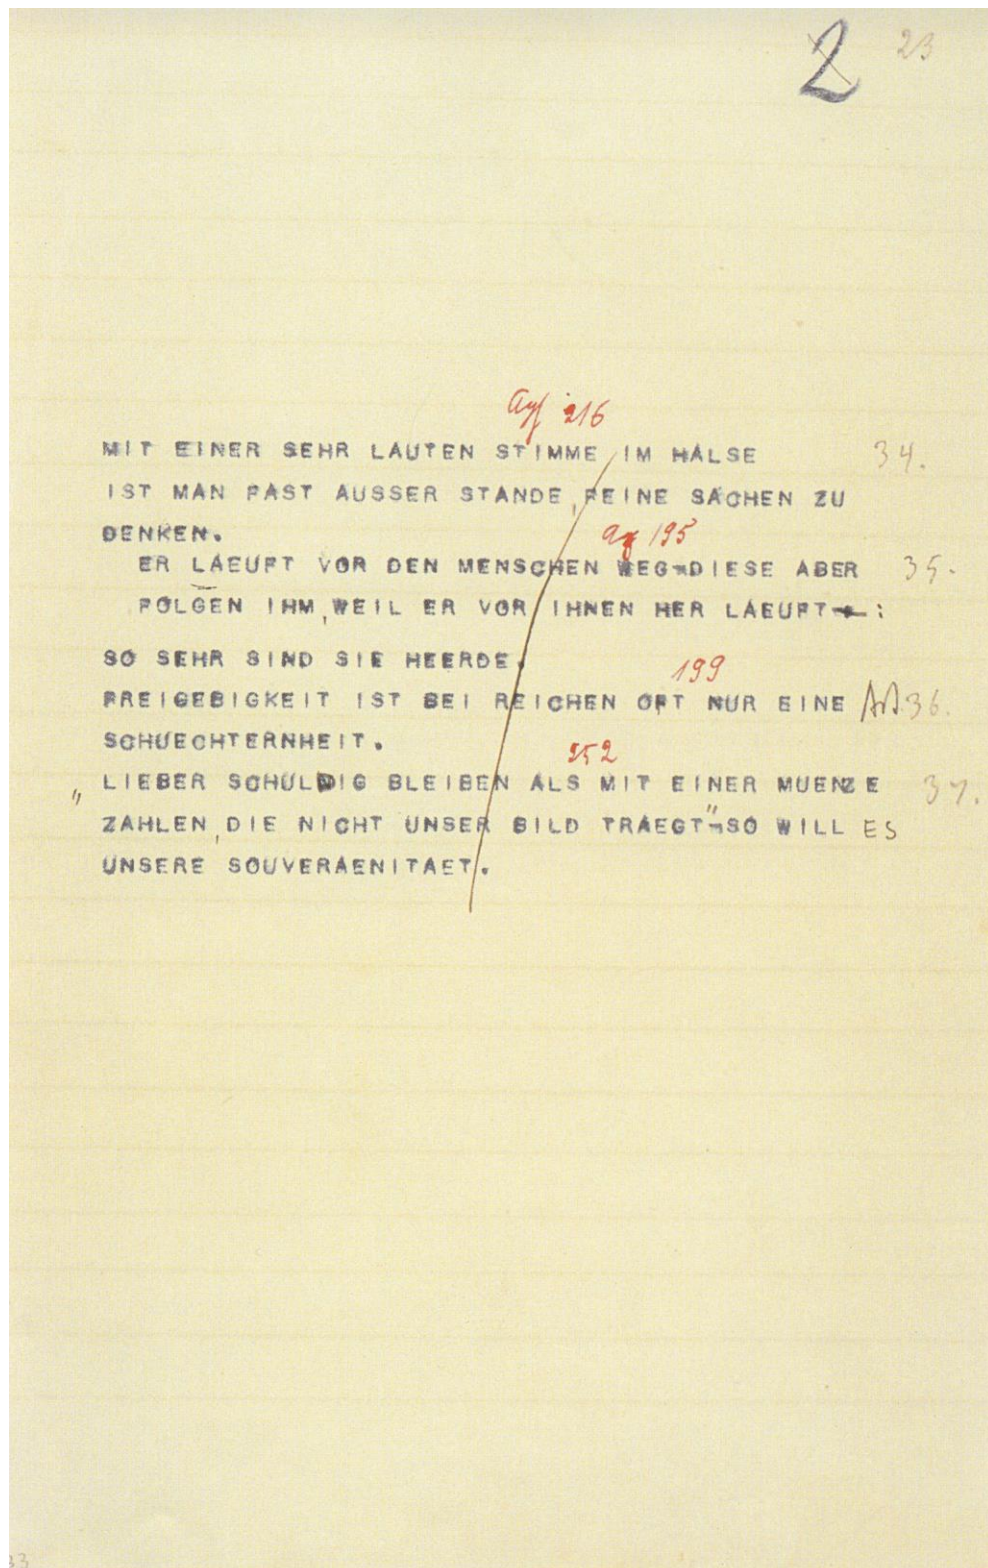 2 23
216
MIT EINER SEHR LAUTEN STIMME IM HALSE 34.
IST MAN FAST AUSSER STANDE, FEINE SACHEN ZU
DENKEN.
195
ER LAEUFT VOR DEN MENSCHEN WEG-DIESE ABER 35.
FOLGEN IHM, WEIL ER VOR IHNEN HER LAEUFT :
SO SEHR SIND SIE HEERDE.
199
FREIGEBIGKEIT IST BEI REICHEN OFT NUR EINE Art 36.
SCHUECHTERNHEIT.
252
„LIEBER SCHULDIG BLEIBEN ALS MIT EINER MUENZE 37.
ZAHLEN, DIE NICHT UNSER BILD TRAEGT"-SO WILL ES
UNSERE SOUVERAENITAET.
33